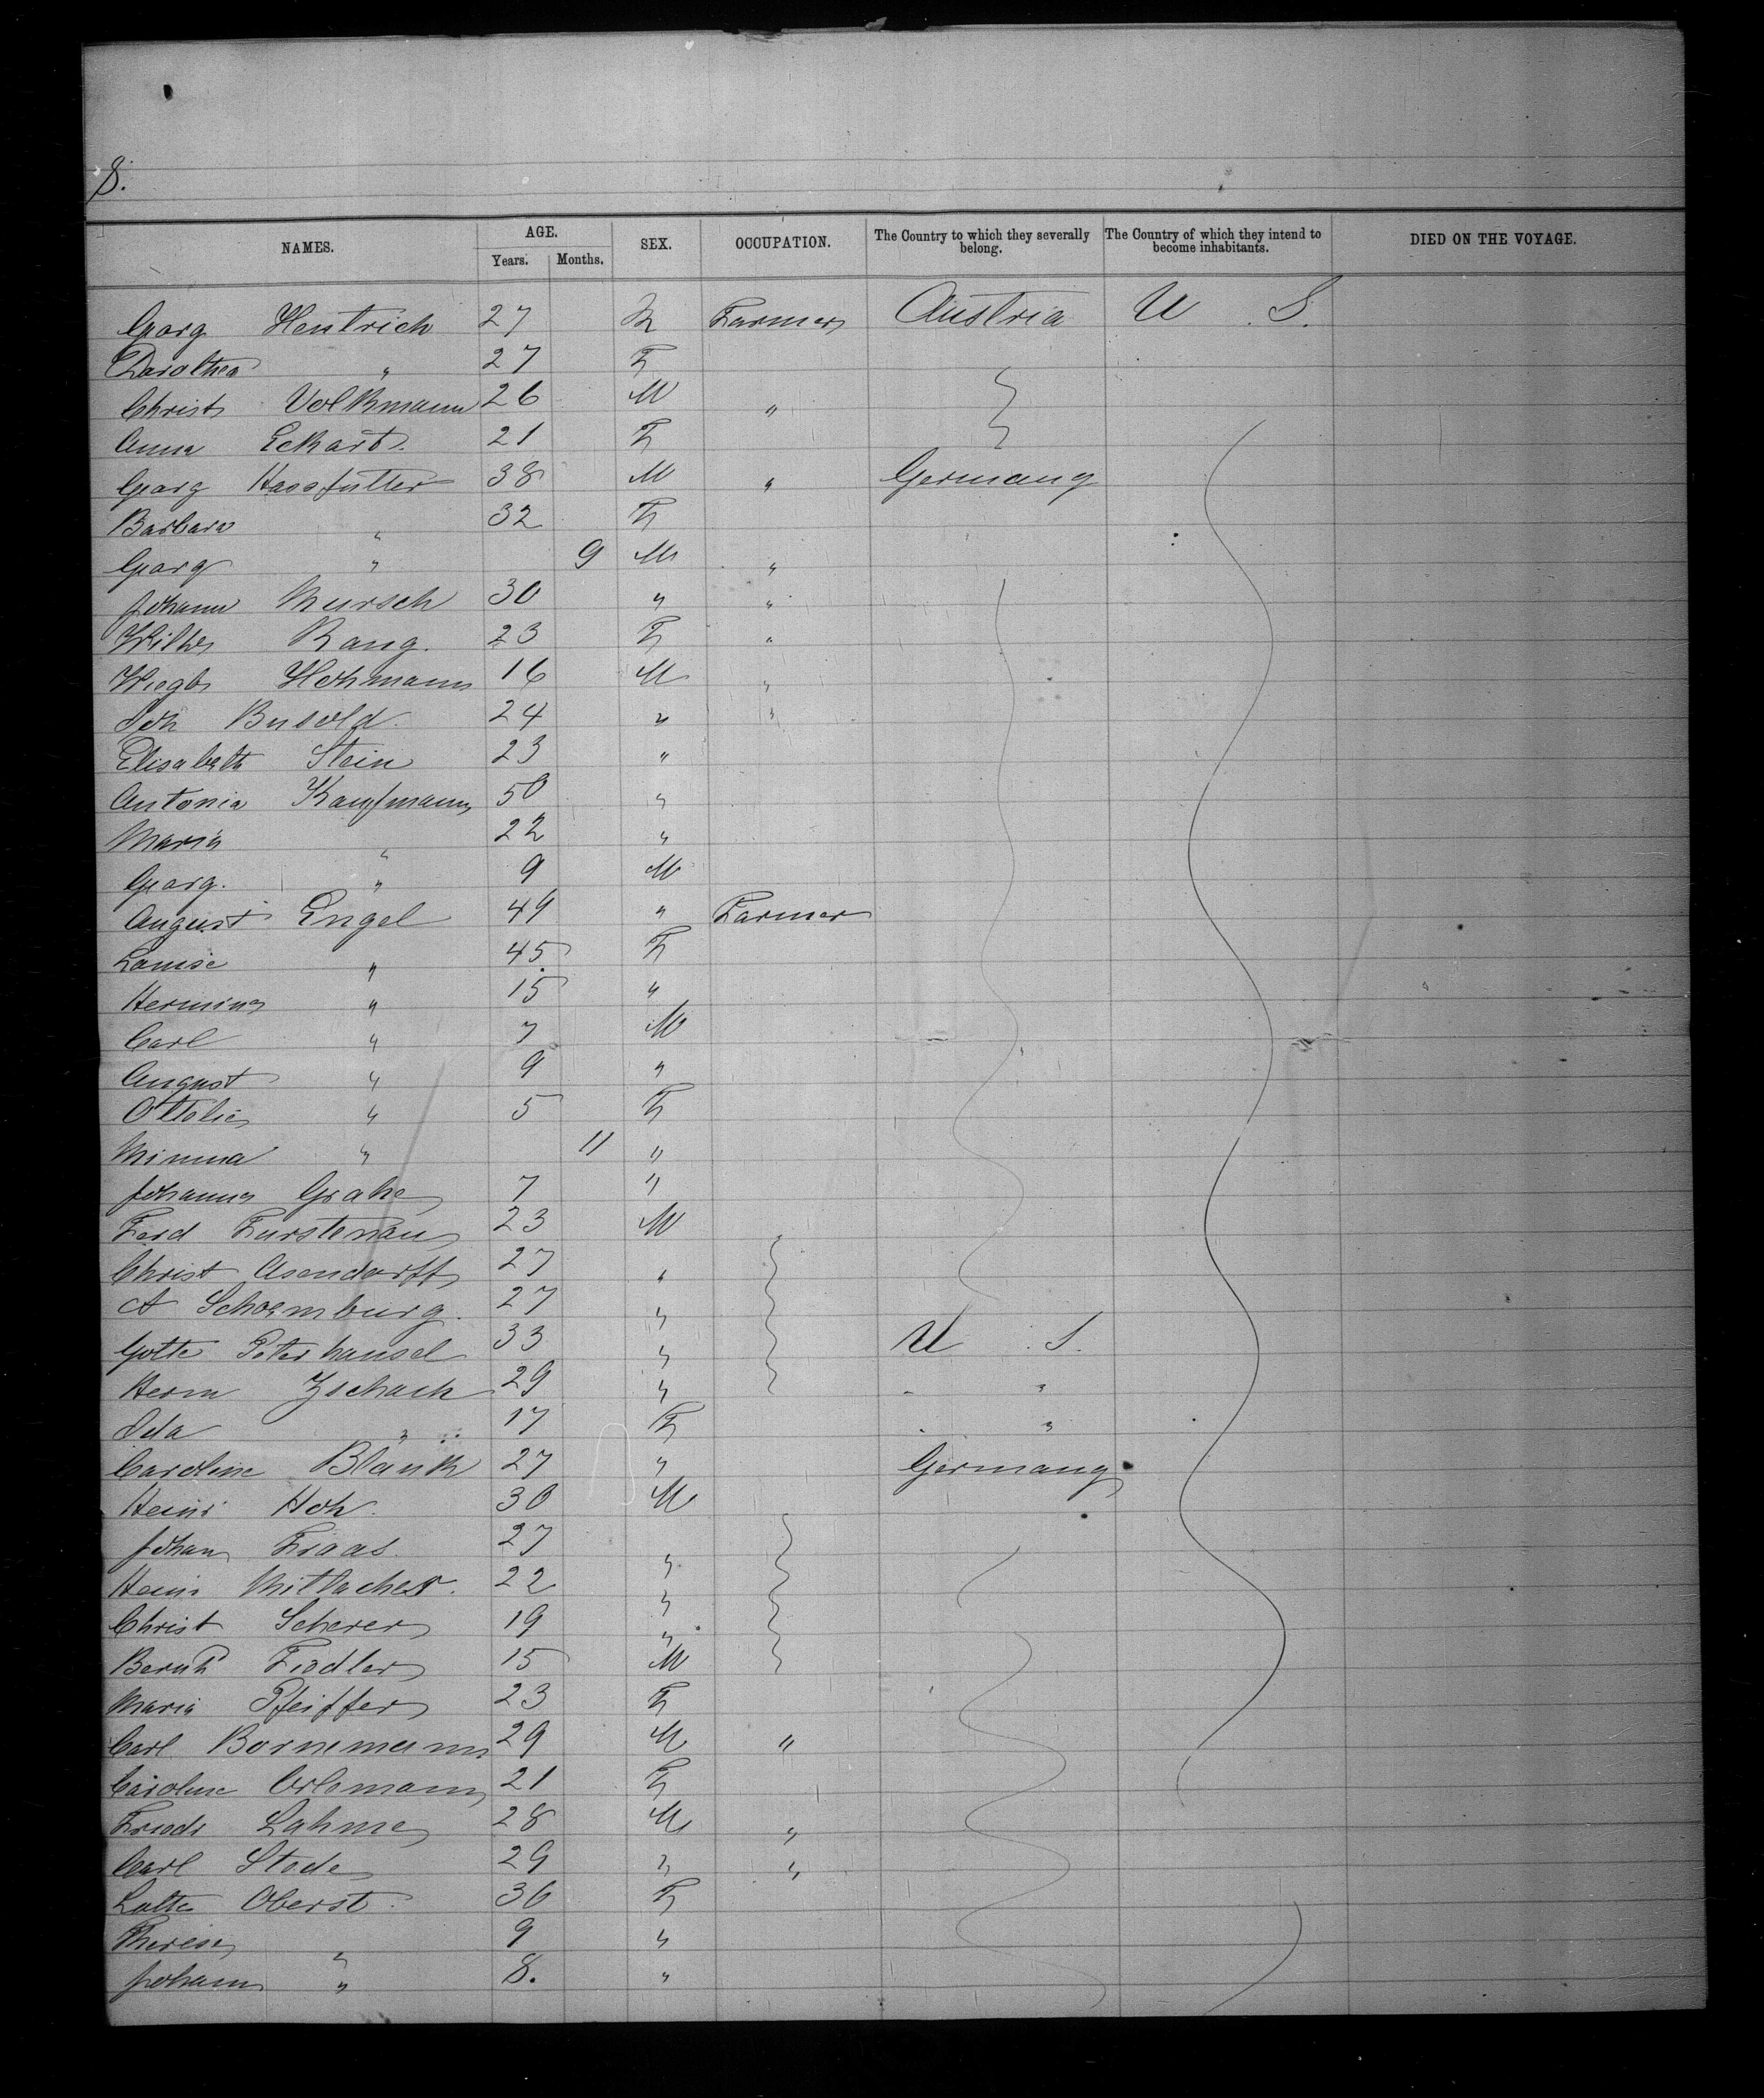 8.
NAMES. AGE. Years. Months. SEX. OCCUPATION. The Country to which they severally belong. The Country of which they intend to become inhabitants. DIED ON THE VOYAGE.
Georg Hentrich 27 M Farmer Austria U S.
Dorothea " 27 F
Christ Volkmann 26 M "
Anna Eckart. 21 F
Georg Hassfutter 38 M " Germany
Barbara " 32 F
Georg " 9 M "
Johann Mursch 30 " "
Wilh Rang. 23 F "
Hohmann 16 M "
Joh Busold. 24 " "
Elisabeth Stein 23 "
Antonia Kaufmann 50 "
Maria " 22 "
Georg. " 9 M
August Engel 49 " Farmer
Louise " 45 F
Hermine " 15 "
Carl " 7 M
August " 9 "
Ottolie " 5 F
Minna " 11 "
Johanna Grahe 7 "
Ferd Furstenau 23 M
Christ Asendorff 27 "
A Schoemburg. 27 "
Gotte Peterhansel 33 " U S.
Herm Zschach 29 " " "
Ida " 17 F " "
Caroline Blank 27 " Germany
Heinr Hoh. 30 M
Johan Fraas. 27 "
Heinr Mitlacher. 22 "
Christ Scherer 19 "
Bernh Fiedler 15 M
Maria Pfeiffer 23 F
Carl Bornemann 29 M "
Caroline 21 F
Friedr Lahme 28 M "
Carl Stede 29 " "
Lotte Oberst. 36 F
Therese " 9 "
Johann " 8. "